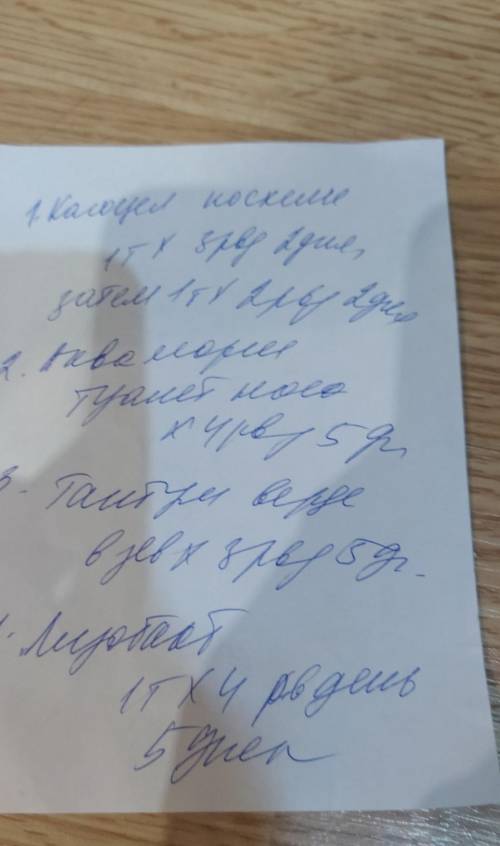 1. Кагоцел по схеме
1т х 3 р в д 2 дня,
затем 1т х 2 р в д 2 дня
2. Аква марис
туалет носа
х 4 р в д 5 д.
3. Тантум верде
в зев х 3 р в д 5 д.
Лизобакт
1т х 4 р в день
5 дней